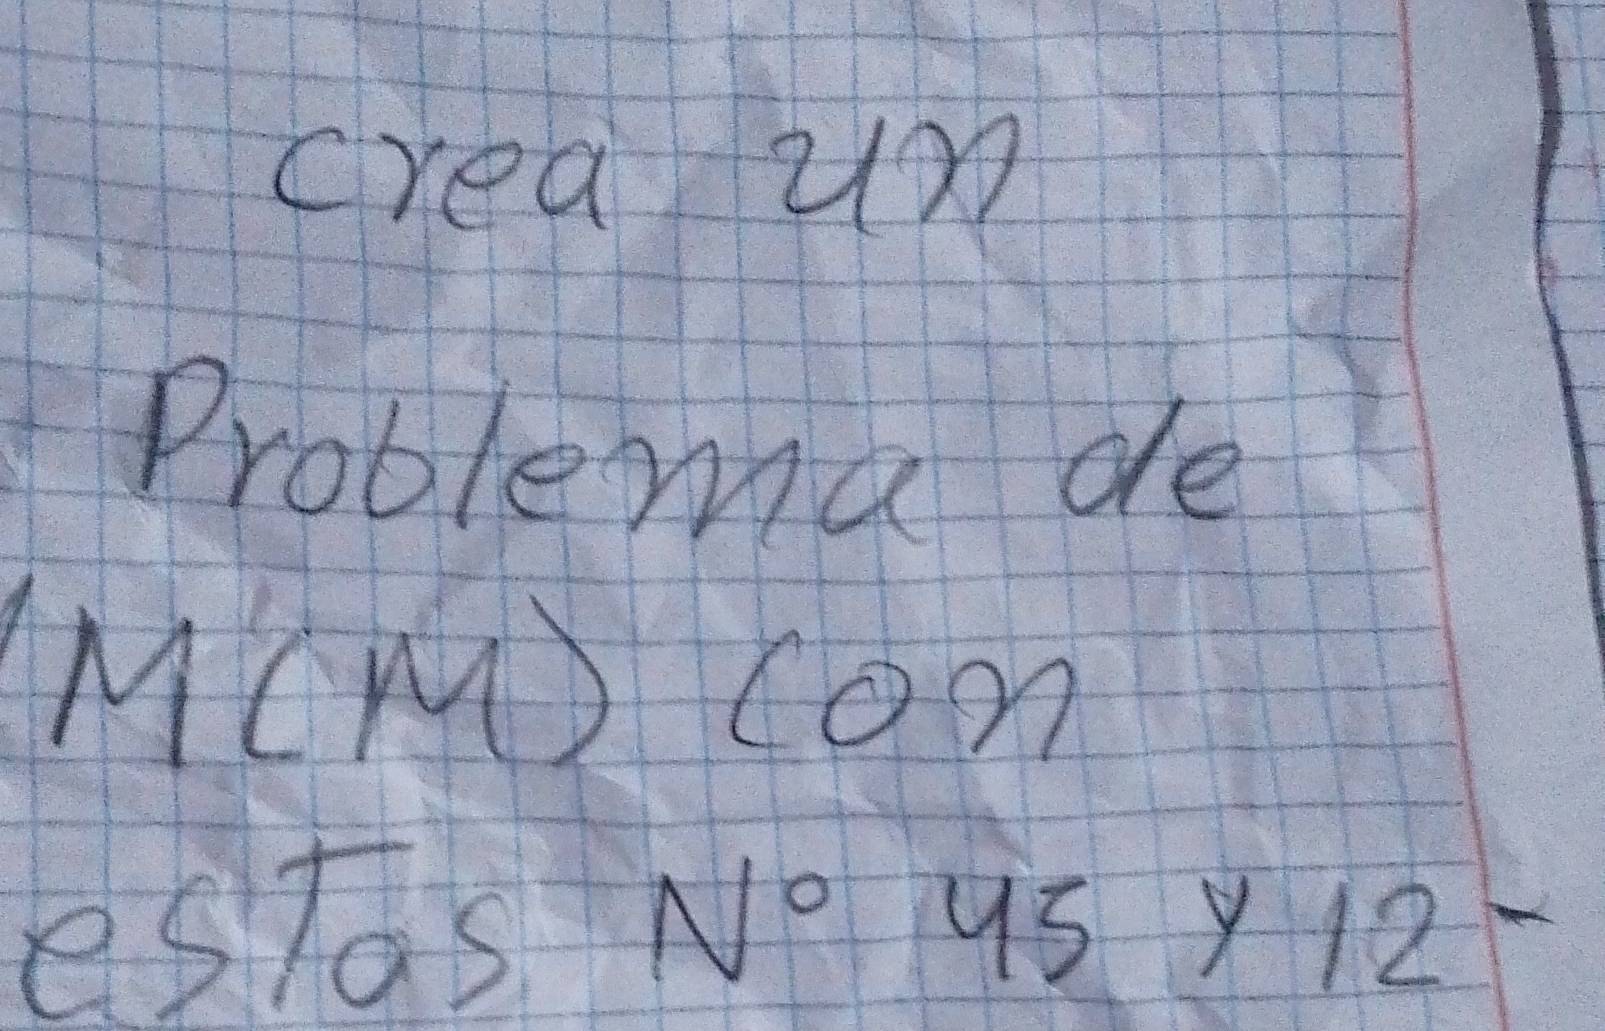 crea un
Problema de
(MCM) con
estos N° 45 y 12-